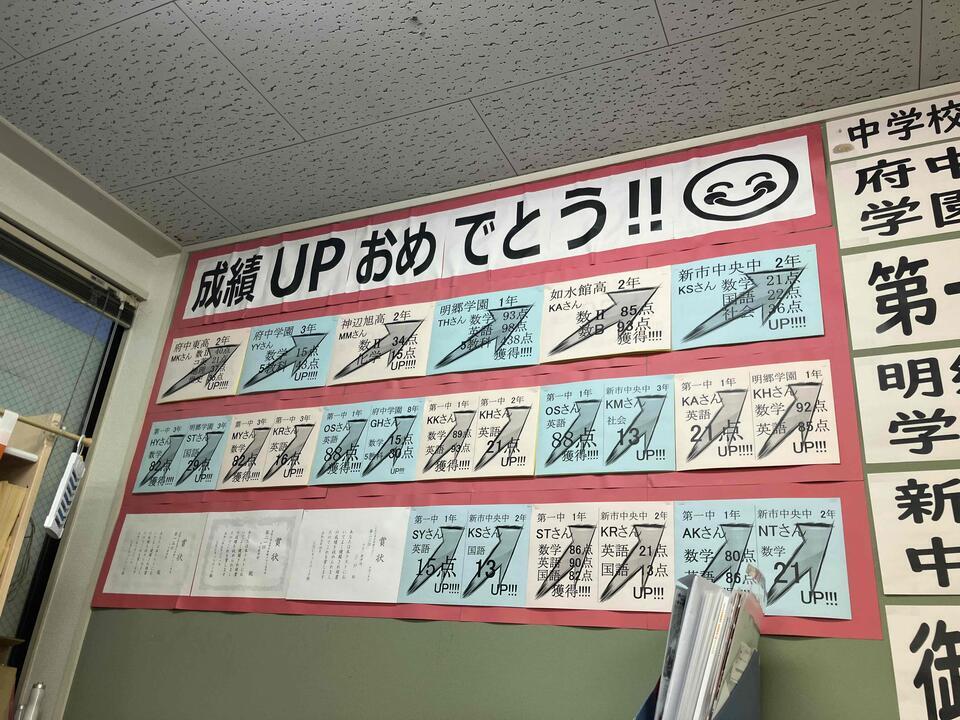 成績 UP おめでとう!!
府中東高 2年
MKさん
UP!!!!
府中学園 3年
YYさん
数学 15点
5教科 143点
UP!!!!
神辺旭高 2年
MMさん
数Ⅱ 34点
化学 15点
UP!!!!
明郷学園 1年
THさん
数学 93点
英語 98点
5教科 438点
獲得!!!!
如水館高 2年
KAさん
数Ⅱ 85点
数B 93点
獲得!!!!
新市中央中 2年
KSさん
数学 21点
国語 22点
社会 36点
UP!!!!
第一中 3年
HYさん
数学
82点
獲得!!!!
明郷学園 3年
STさん
国語
29点
UP!!!
第一中 3年
MYさん
数学
82点
獲得!!!!
第一中 3年
KRさん
英語
16点
UP!!!
第一中 1年
OSさん
英語
88点
獲得!!!!
府中学園 8年
GHさん
数学 15点
5教科 30点
UP!!!
第一中 1年
KKさん
数学 89点
英語 93点
獲得!!!!
第一中 2年
KHさん
英語
21点
UP!!!!
第一中 1年
OSさん
英語
88点
獲得!!!!
新市中央中 3年
KMさん
社会
13
UP!!!
第一中 2年
KAさん
英語
21点
UP!!!!
明郷学園 1年
KHさん
数学 92点
英語 85点
獲得!!!!
賞状
賞状
賞状
第一中 1年
SYさん
英語
15点
UP!!!!
新市中央中 2年
KSさん
国語
13
UP!!!
第一中 1年
STさん
数学 86点
英語 90点
国語 82点
獲得!!!!
新市中央中 2年
KRさん
英語 21点
国語 13点
UP!!!
第一中 1年
AKさん
数学 80点
英語 86点
新市中央中 2年
NTさん
数学
21
UP!!!
中学校
府中
学園
第一
明郷
学
新
中
御